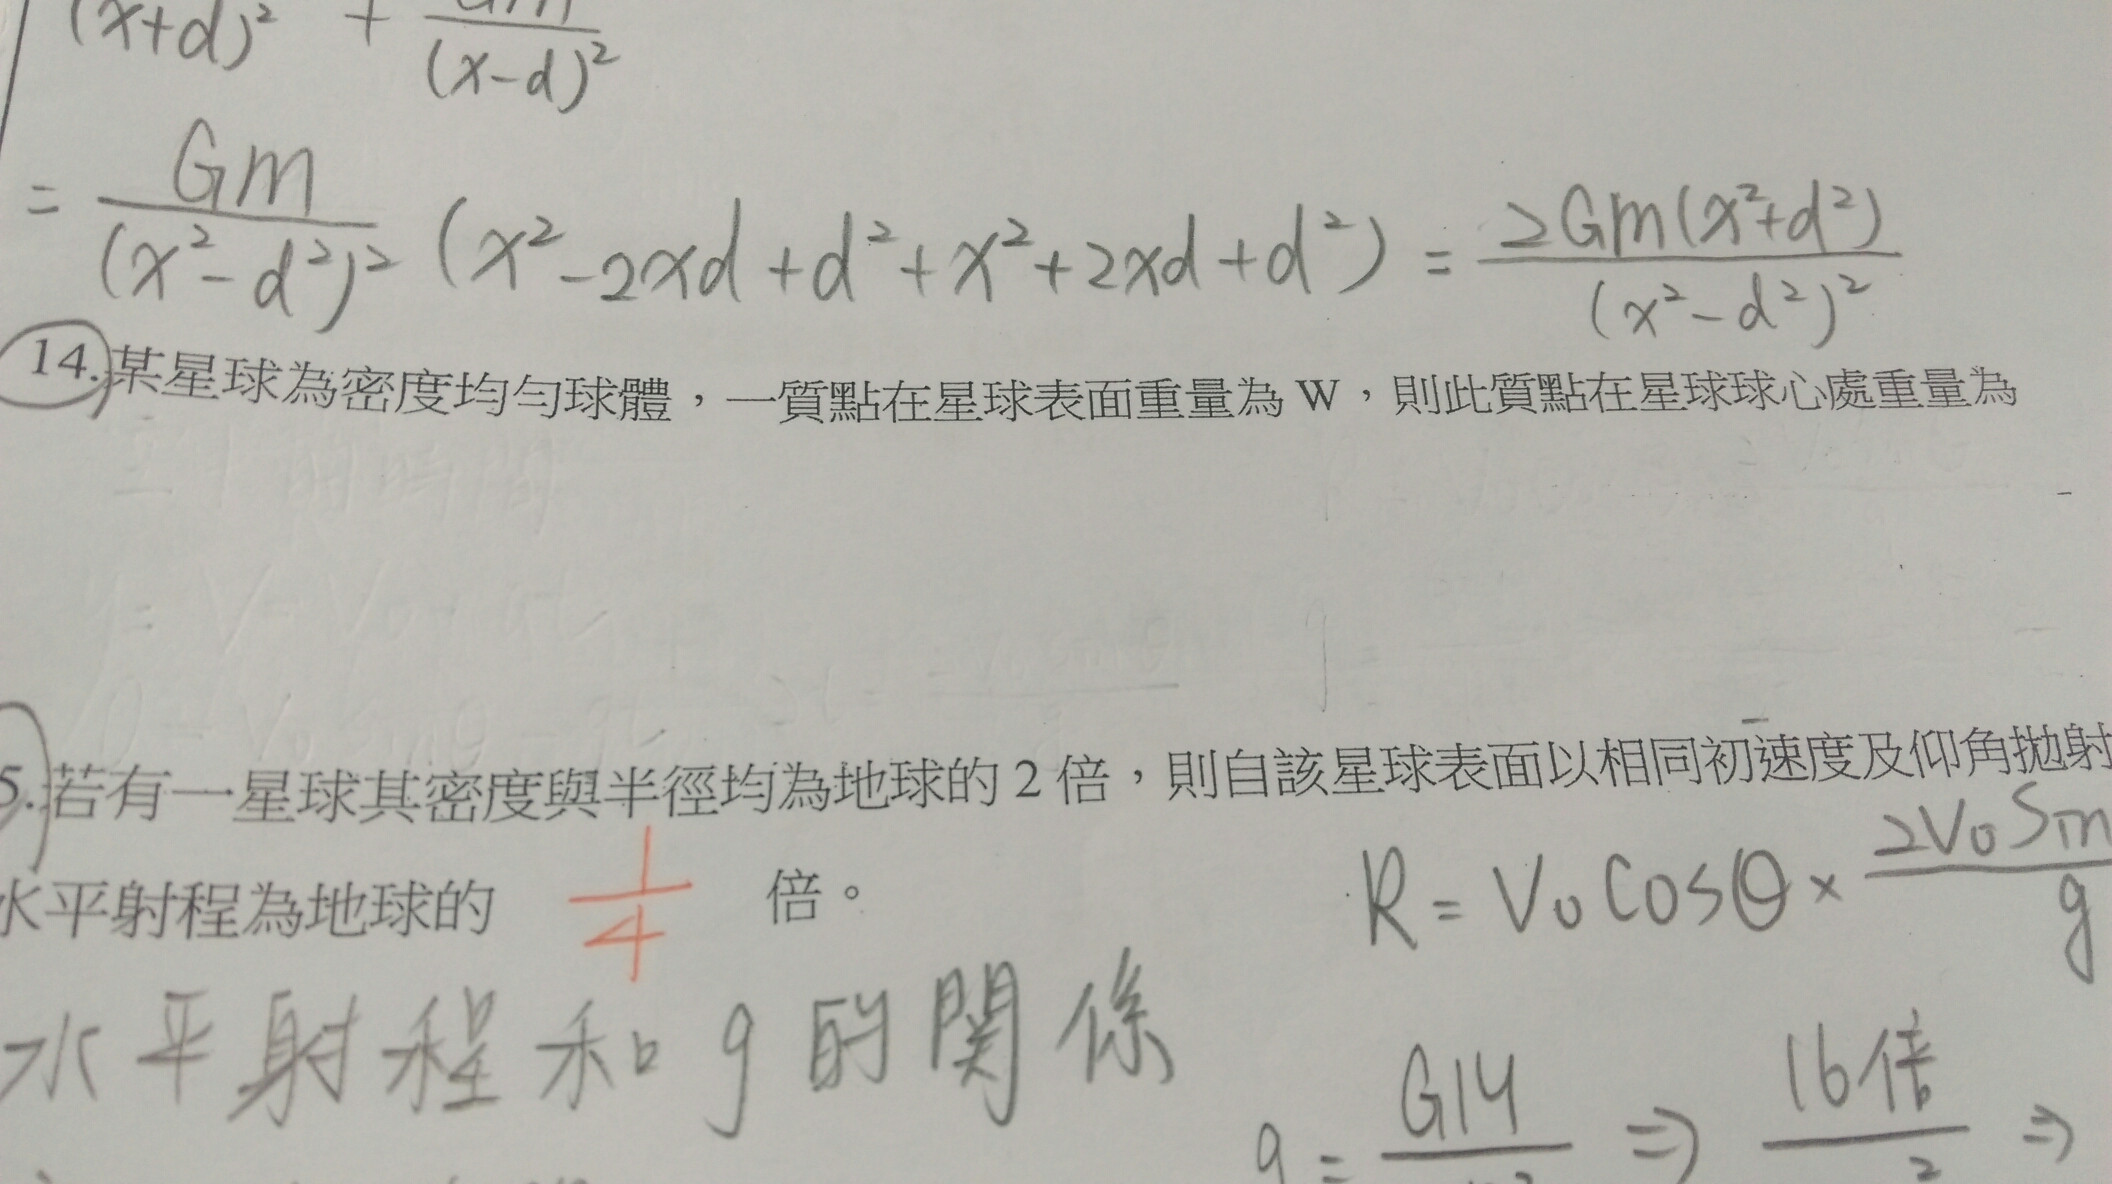 (x+d)² + Gm/(x-d)²
= Gm/(x²-d²)² (x²-2xd+d²+x²+2xd+d²) = 2Gm(x²+d²)/(x²-d²)²
14.某星球為密度均勻球體，一質點在星球表面重量為 W，則此質點在星球球心處重量為
5.若有一星球其密度與半徑均為地球的 2 倍，則自該星球表面以相同初速度及仰角拋射
水平射程為地球的 1/4 倍。
R = V₀ cosθ × 2V₀ Sin/g
水平射程和 g 的關係
g = GM ⇒ 16倍/² ⇒